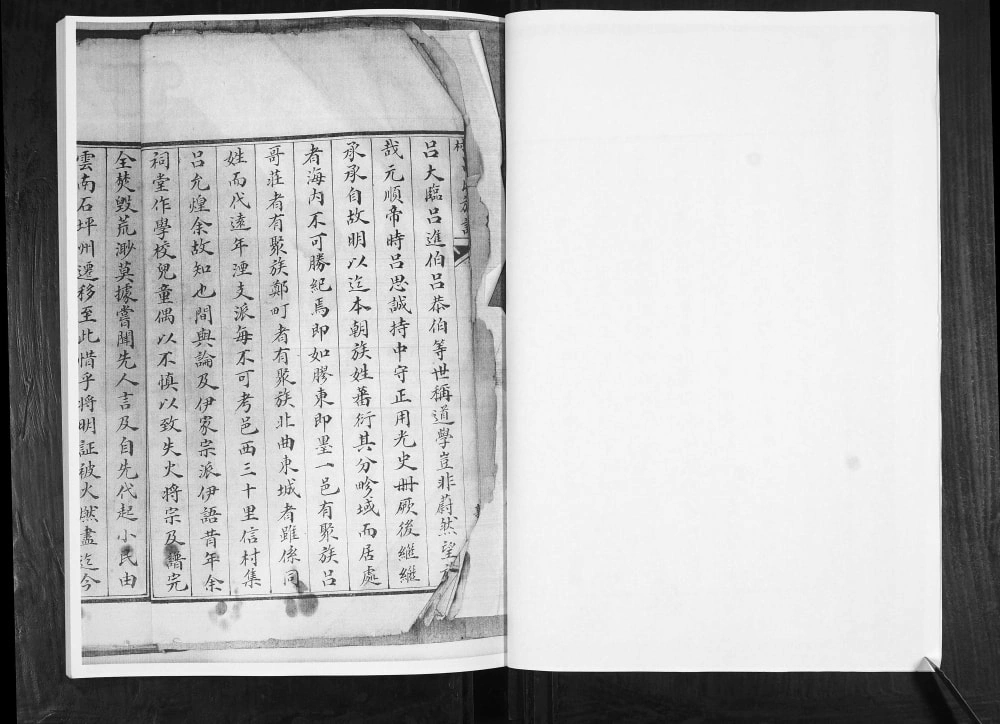 呂大臨呂進伯呂恭伯等世稱道學豈非蔚然望
哉元順帝時呂思誠持中守正用光史冊厥後繼繼
承承自故明以迄本朝族姓蕃衍其分畛域而居處
者海内不可勝紀焉即如膠東即墨一邑有聚族呂
哥莊者有聚族鄭町者有聚族北曲東城者雖係同
姓而代遠年湮支派每不可考邑西三十里信村集
呂允煌余故知也間與論及伊家宗派伊語昔年余
祠堂作學校兒童偶以不慎以致失火將宗及譜完
全焚毀荒渺莫據嘗聞先人言及自先代起小民由
雲南石坪州遷移至此惜乎將明証被火燃盡迄今